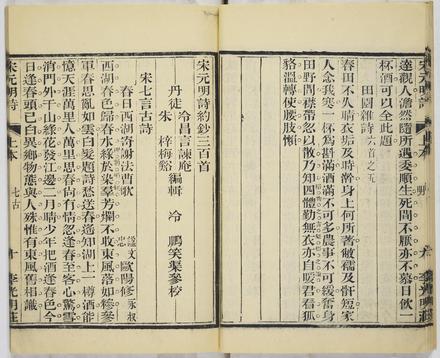 宋元明詩 上本 明 九 李光明莊
達觀人澹然隨所遇憂順生死間不厭亦不慕日飲一
杯酒可以全此趣
田園雜詩 六首之五
春田不久晴衣垢及時澣身上何所著敝襦及骭短家
人念我寒一杯爲斟滿酒滿不可多農事不可緩奮身
田野間襟帶忽以散乃知四體勤無衣亦自暖君看狐
貉溫轉使腰肢懶
宋元明詩約鈔三百首
丹徒 冷昌言諫庵
朱 梓梅谿 編輯 冷 鵬笑 參校
宋七言古詩
春日西湖寄謝法曹歌 諡文忠 歐陽修 永叔
西湖春色歸春水綠於染羣芳爛不收東風落如糝參
軍春思亂如雲白髮題詩愁送春遙知湖上一樽酒能
憶天涯萬里人萬里思春尚有情忽逢春至客心驚雪
消門外千山綠花發江邊二月晴少年把酒逢春色今
日逢春頭已白異鄉物態與人殊惟有東風舊相識
宋元明詩 上本 七古 十 李光明莊